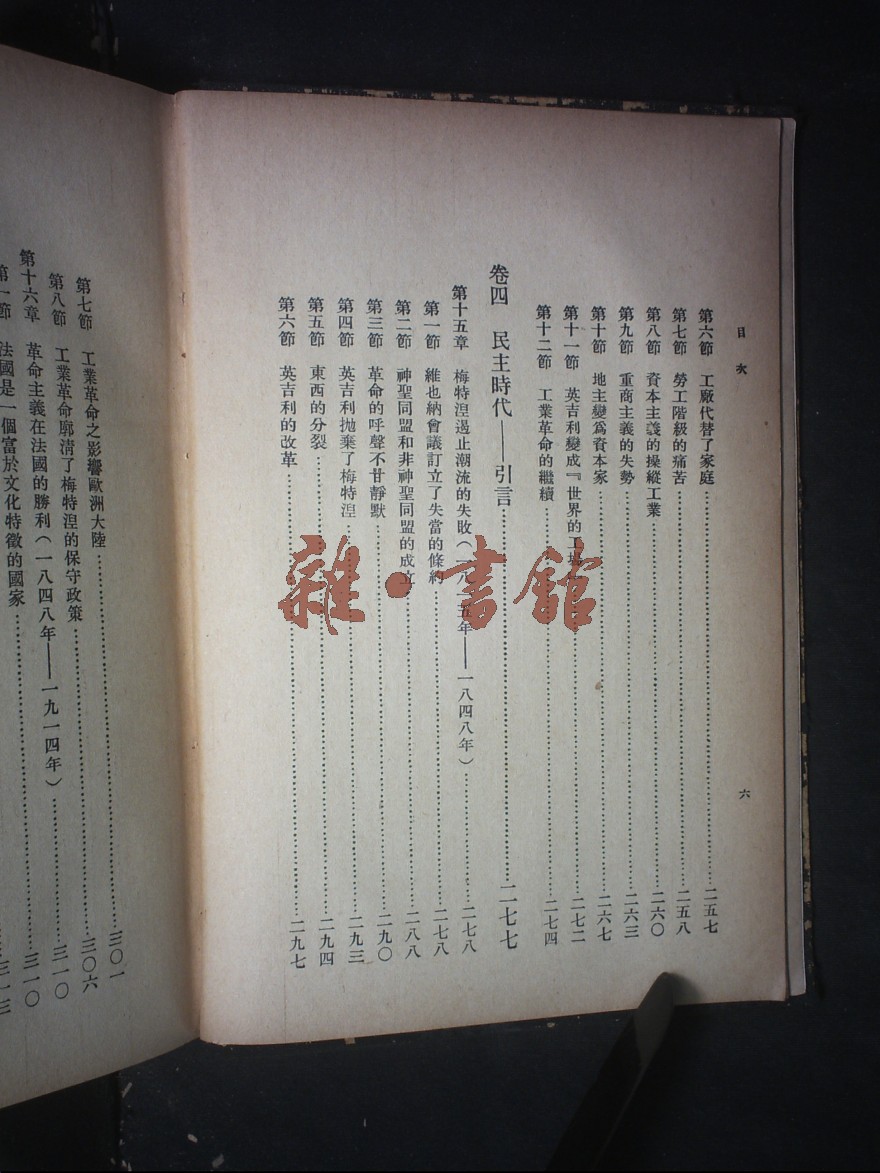 目次
六
第六節 工廠代替了家庭……二五七
第七節 勞工階級的痛苦……二五八
第八節 資本主義的操縱工業……二六〇
第九節 重商主義的失勢……二六三
第十節 地主變爲資本家……二六七
第十一節 英吉利變成『世界的工場……二七二
第十二節 工業革命的繼續……二七四
卷四 民主時代——引言……二七七
第十五章 梅特涅遏止潮流的失敗(一八一五年——一八四八年)……二七八
第一節 維也納會議訂立了失當的條約……二七八
第二節 神聖同盟和非神聖同盟的成立……二八八
第三節 革命的呼聲不甘靜默……二九〇
第四節 英吉利拋棄了梅特涅……二九三
第五節 東西的分裂……二九四
第六節 英吉利的改革……二九七
第七節 工業革命之影響歐洲大陸……三〇一
第八節 工業革命廓清了梅特涅的保守政策……三〇六
第十六章 革命主義在法國的勝利(一八四八年——一九一四年)……三一〇
第一節 法國是一個富於文化特徵的國家……三一〇
雜·書館